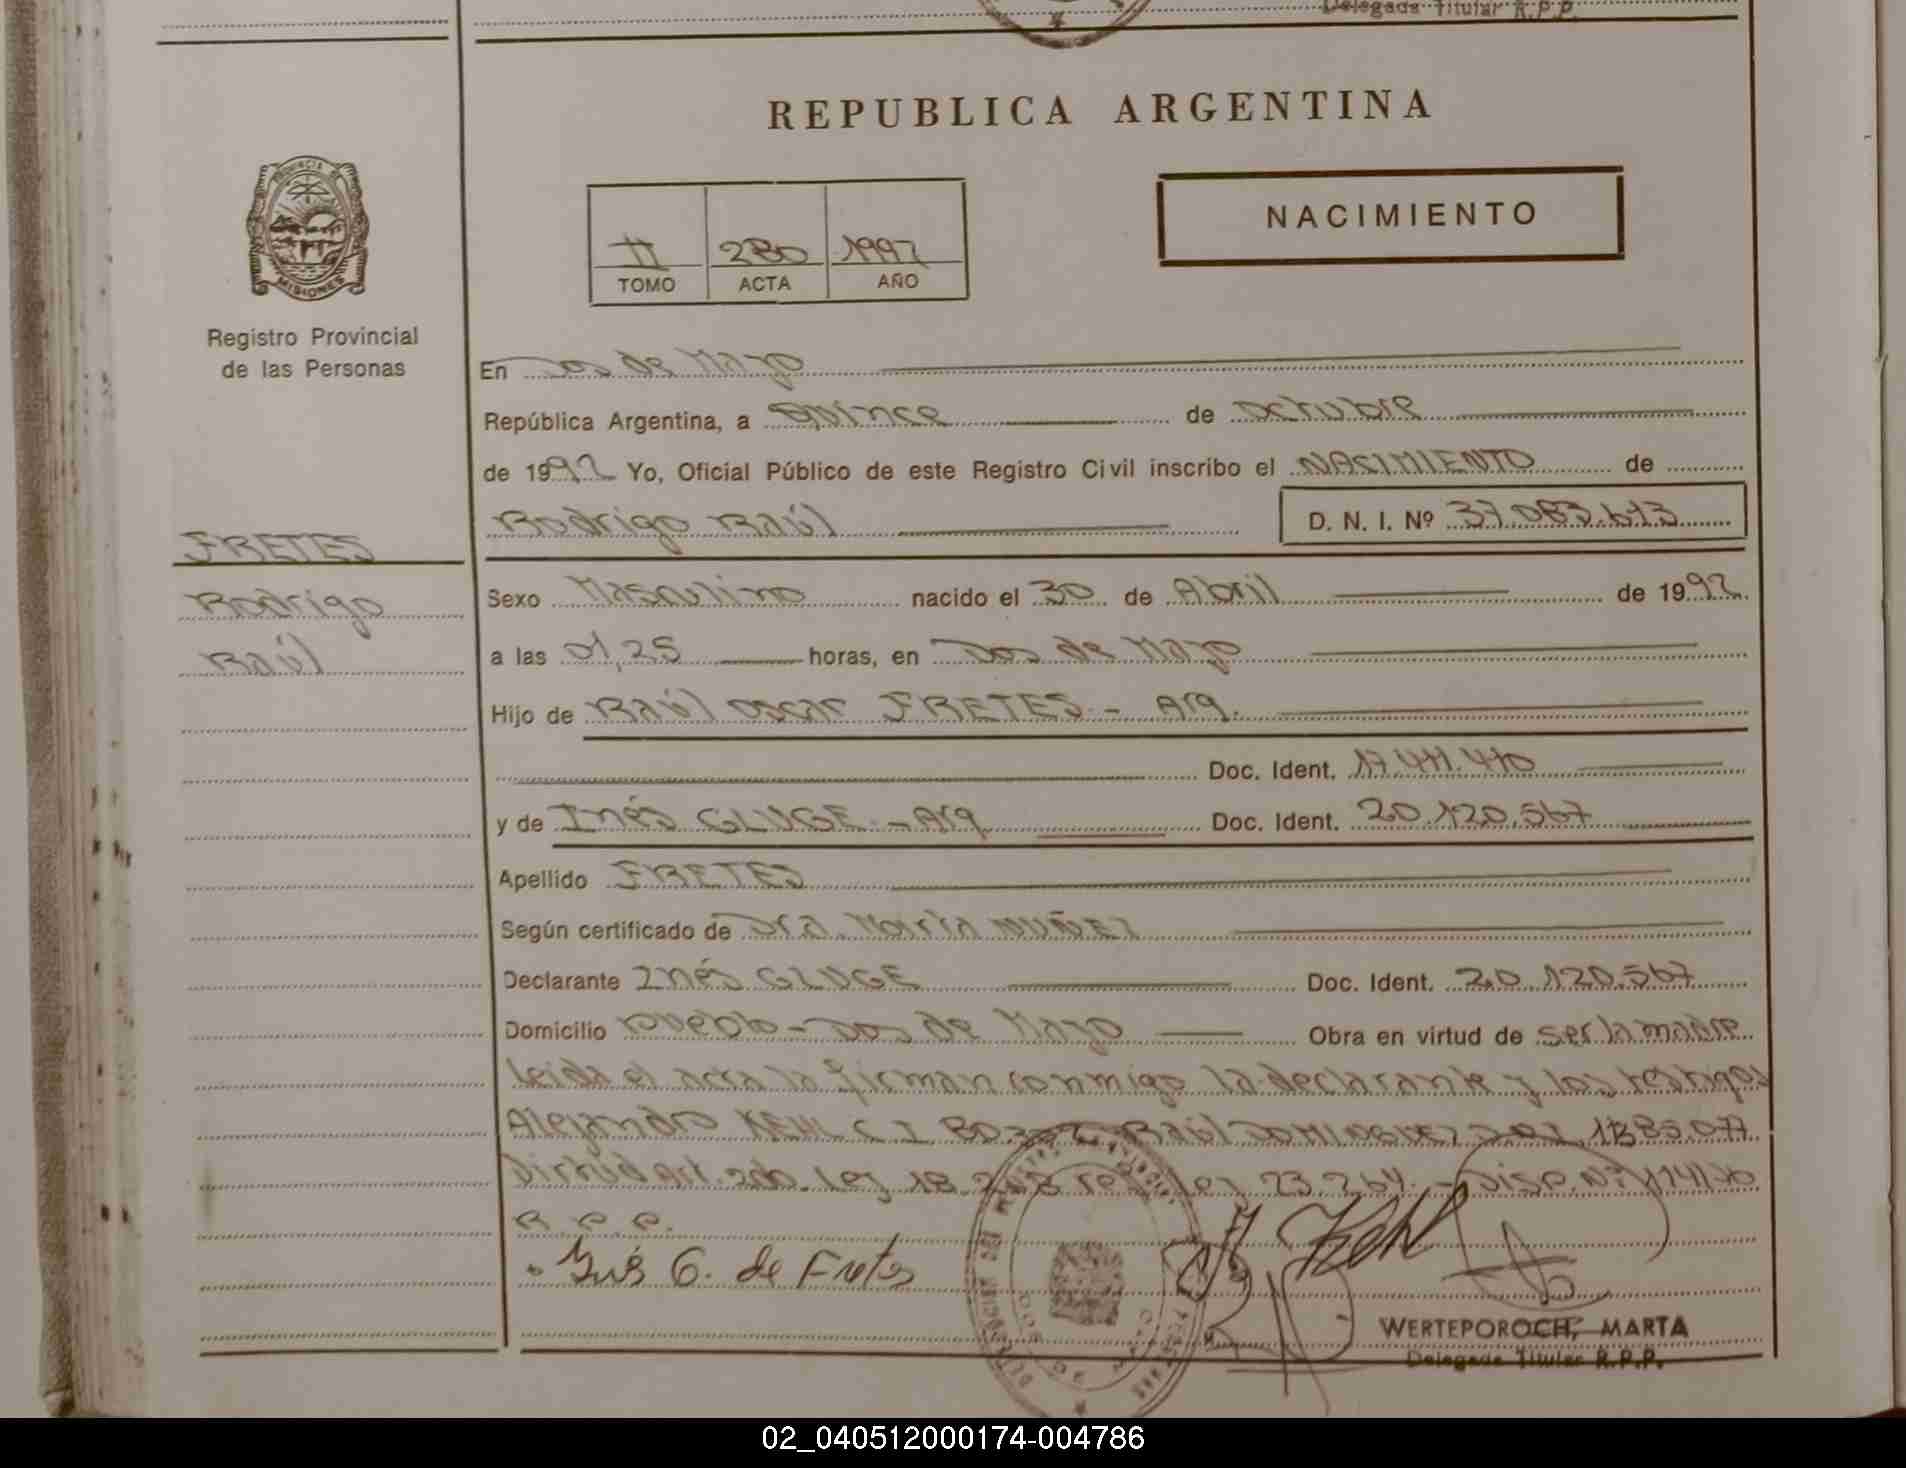 Delegada Titular R.P.P.
REPUBLICA ARGENTINA
NACIMIENTO
II 280 1992
TOMO ACTA AÑO
PROVINCIA DE
MISIONES
Registro Provincial
de las Personas
FRETES
Rodrigo
Raúl
En Dos de Mayo
República Argentina, a Quince de octubre
de 1992 Yo, Oficial Público de este Registro Civil inscribo el NACIMIENTO de
Rodrigo Raúl D. N. I. Nº 37.083.613
Sexo Masculino nacido el 30 de Abril de 1992
a las 01,25 horas, en Dos de Mayo
Hijo de Raúl oscar FRETES - Arg.
Doc. Ident. 17.411.410
y de Inés GLUGE - Arg Doc. Ident. 20.120.567
Apellido FRETES
Según certificado de Dra. María NUÑEZ
Declarante Inés GLUGE Doc. Ident. 20.120.567
Domicilio Pueblo - Dos de Mayo Obra en virtud de ser la madre
leida el acta la firman conmigo la declarante y los testigos
Alejandro KEHL C I Raúl DOMINGUEZ D.N.I.
Virtud Art. 2do. Ley 18.248 ref. ley 23.264. - Disp. Nº
R. P. P.
Inés G. de Fretes
A. Kehl
WERTEPOROCH, MARTA
Delegada Titular R.P.P.
02_040512000174-004786